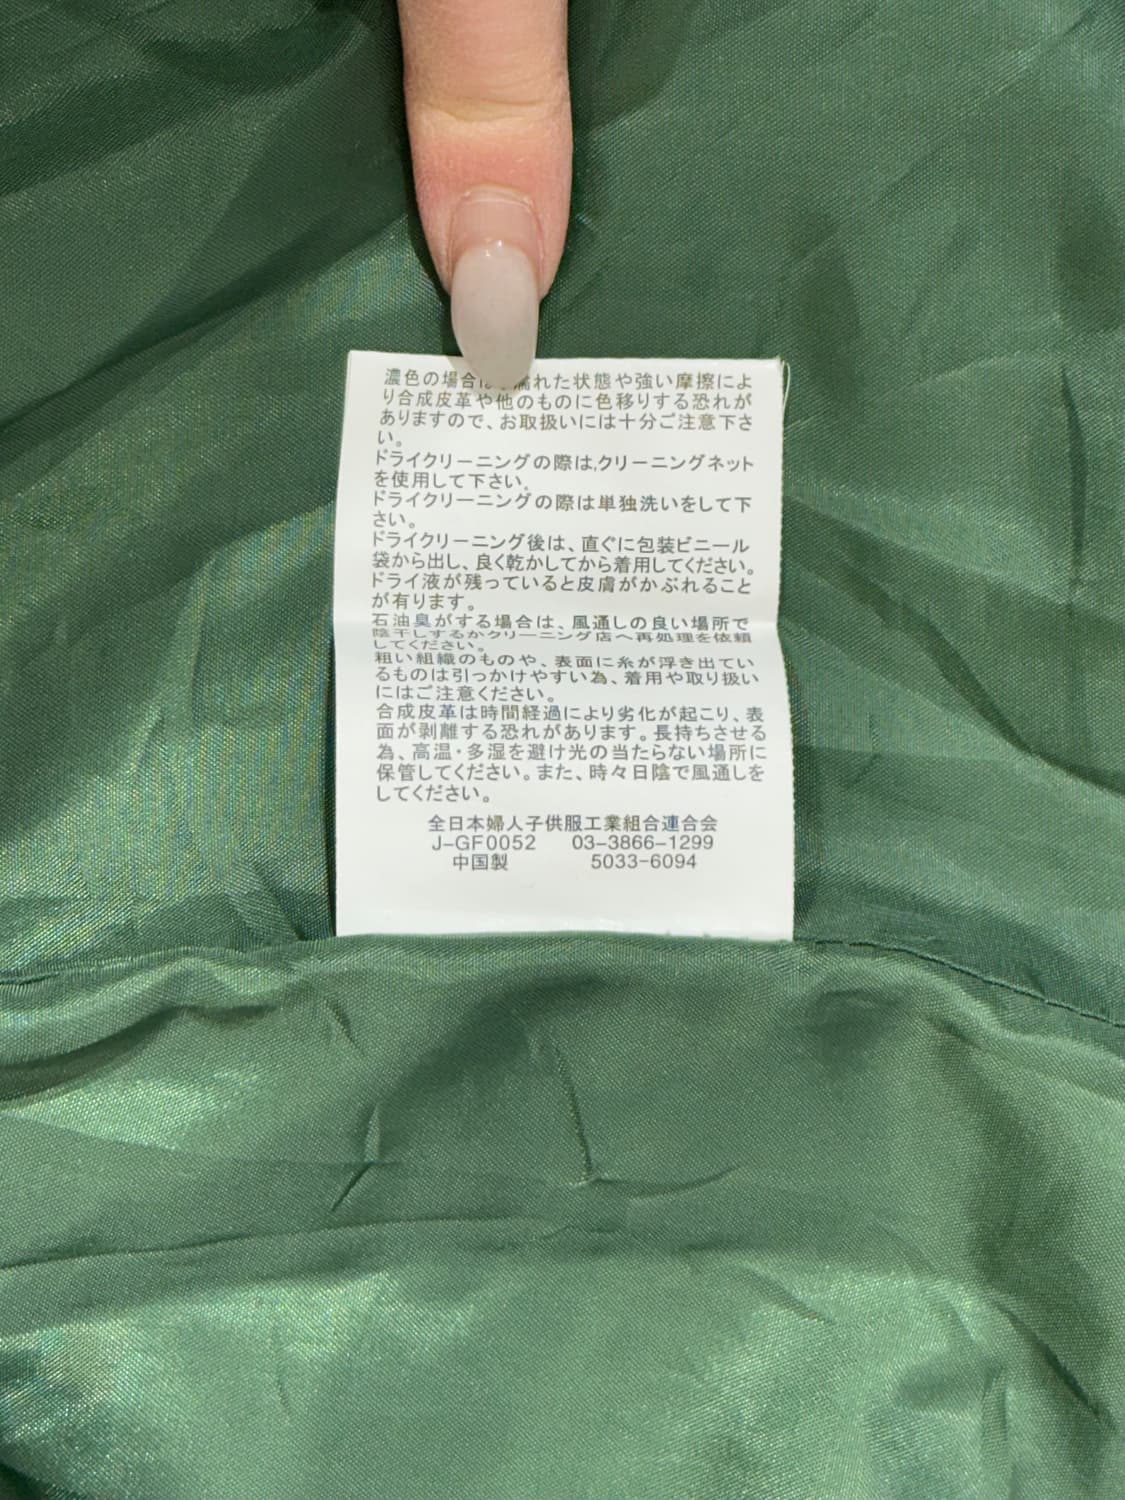 濃色の場合は、濡れた状態や強い摩擦によ
り合成皮革や他のものに色移りする恐れが
ありますので、お取扱いには十分ご注意下さ
い。
ドライクリーニングの際は,クリーニングネット
を使用して下さい。
ドライクリーニングの際は単独洗いをして下
さい。
ドライクリーニング後は、直ぐに包装ビニール
袋から出し、良く乾かしてから着用してください。
ドライ液が残っていると皮膚がかぶれること
が有ります。
石油臭がする場合は、風通しの良い場所で
陰干しするかクリーニング店へ再処理を依頼
してください。
粗い組織のものや、表面に糸が浮き出てい
るものは引っかけやすい為、着用や取り扱い
にはご注意ください。
合成皮革は時間経過により劣化が起こり、表
面が剥離する恐れがあります。長持ちさせる
為、高温・多湿を避け光の当たらない場所に
保管してください。また、時々日陰で風通しを
してください。
全日本婦人子供服工業組合連合会
J-GF0052 03-3866-1299
中国製 5033-6094